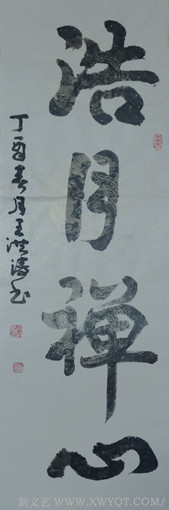 浩月禅心
丁酉春月王洪涛书
新文艺 WWW.XWYQT.COM